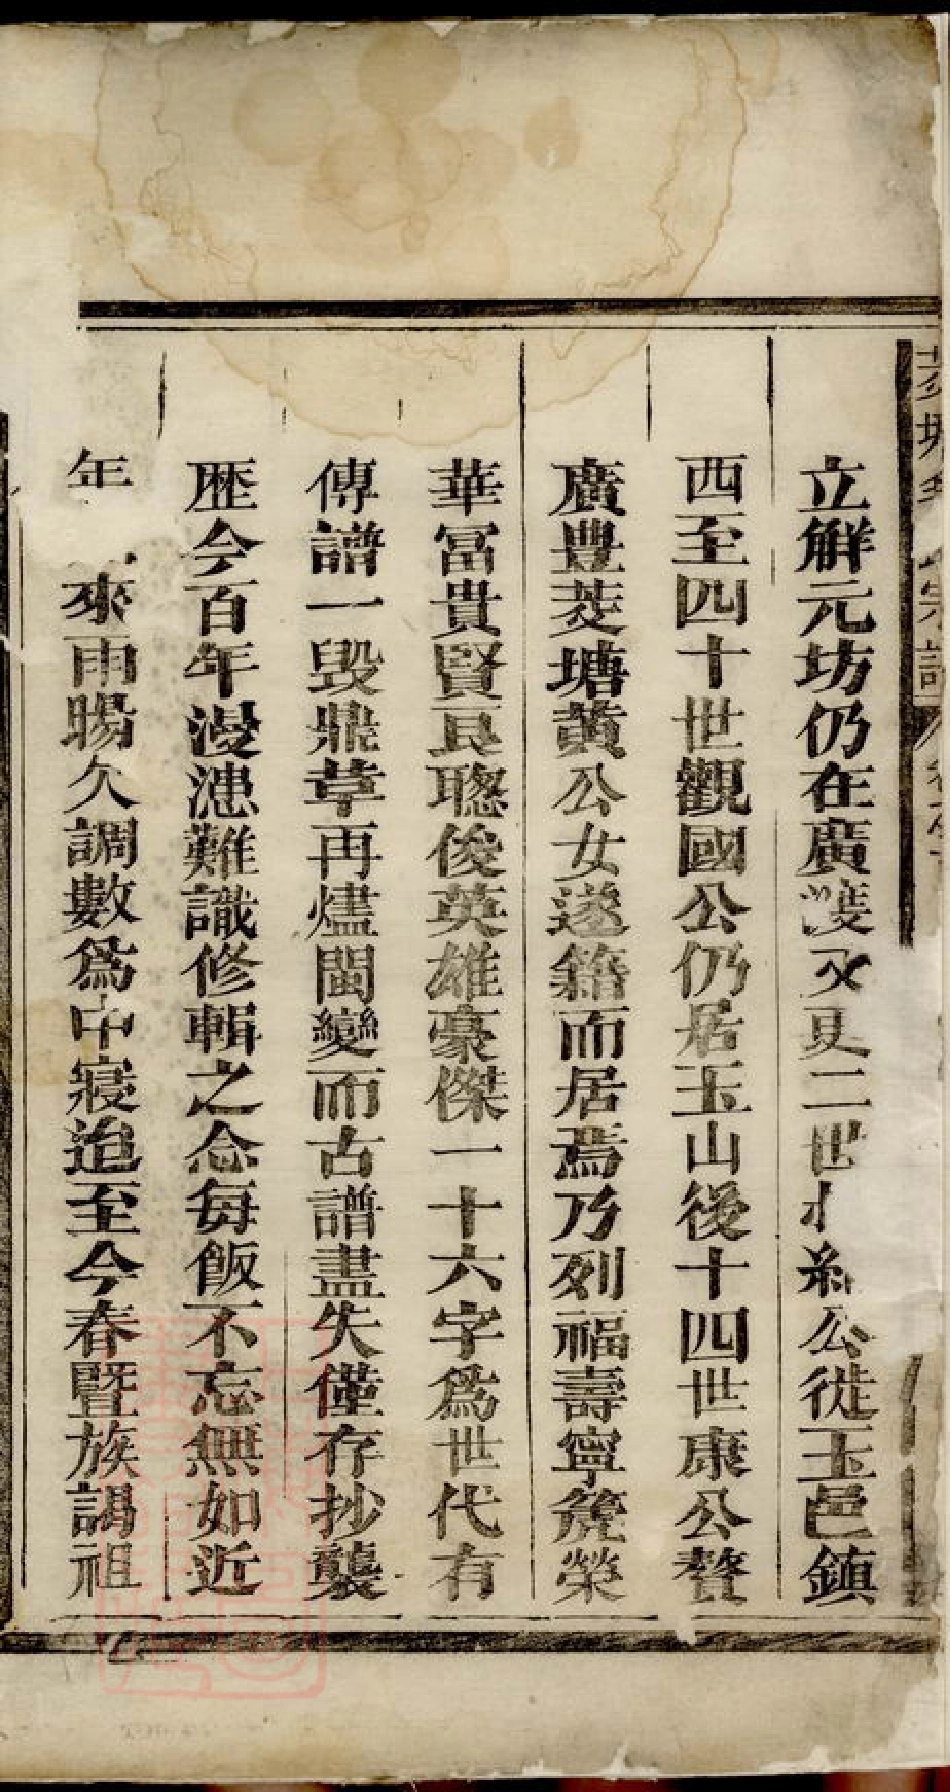 立解元坊仍在廣 又更二世 公徙玉邑鎮
西至四十世觀國公仍居玉山後十四世康公贅
廣豐茭塘黄公女遂籍而居焉乃列福壽寧 榮
華冨貴賢良聰俊英雄豪傑一十六字爲世代有
傳譜一毁鼎革再燼閩變而古譜盡失僅存抄襲
歴今百年漫漶難識修輯之念每飯不忘無如近
年 來雨暘欠調數爲中寢迨至今春曁族謁祖